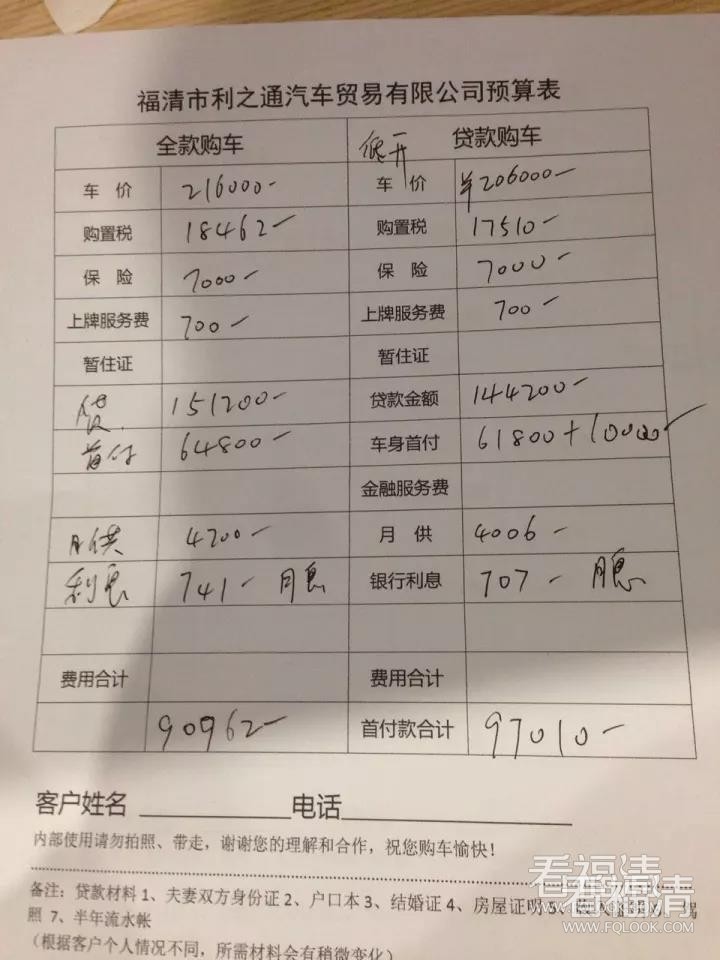 福清市利之通汽车贸易有限公司预算表
全款购车 低开 贷款购车
车 价 216000- 车 价 ¥206000-
购置税 18462- 购置税 17510-
保 险 7000- 保 险 7000-
上牌服务费 700- 上牌服务费 700-
暂住证 暂住证
贷 151200- 贷款金额 144200-
首付 64800- 车身首付 61800+10000-
金融服务费
月供 4200- 月 供 4006-
利息 741- 月息 银行利息 707- 月息
费用合计 费用合计
90962- 首付款合计 97010-
客户姓名 电话
内部使用请勿拍照、带走,谢谢您的理解和合作,祝您购车愉快!
备注:贷款材料 1、夫妻双方身份证 2、户口本 3、结婚证 4、房屋证明 5、
照 7、半年流水帐
(根据客户个人情况不同,所需材料会有稍微变化)
看福清
看福清
WWW.FQLOOK.COM